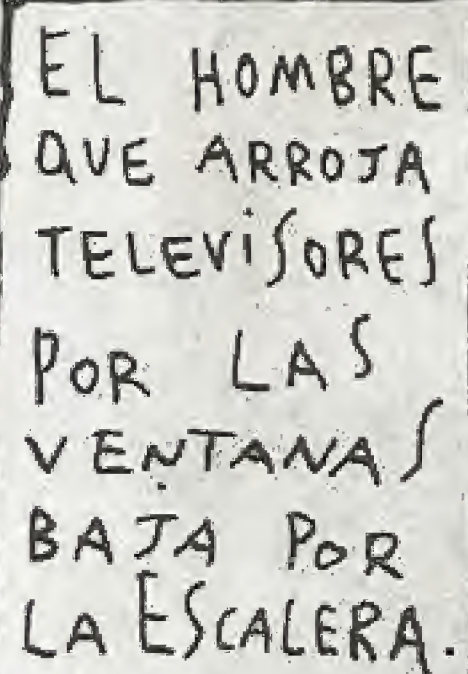 EL HOMBRE
QUE ARROJA
TELEVISORES
POR LAS
VENTANAS
BAJA POR
LA ESCALERA.